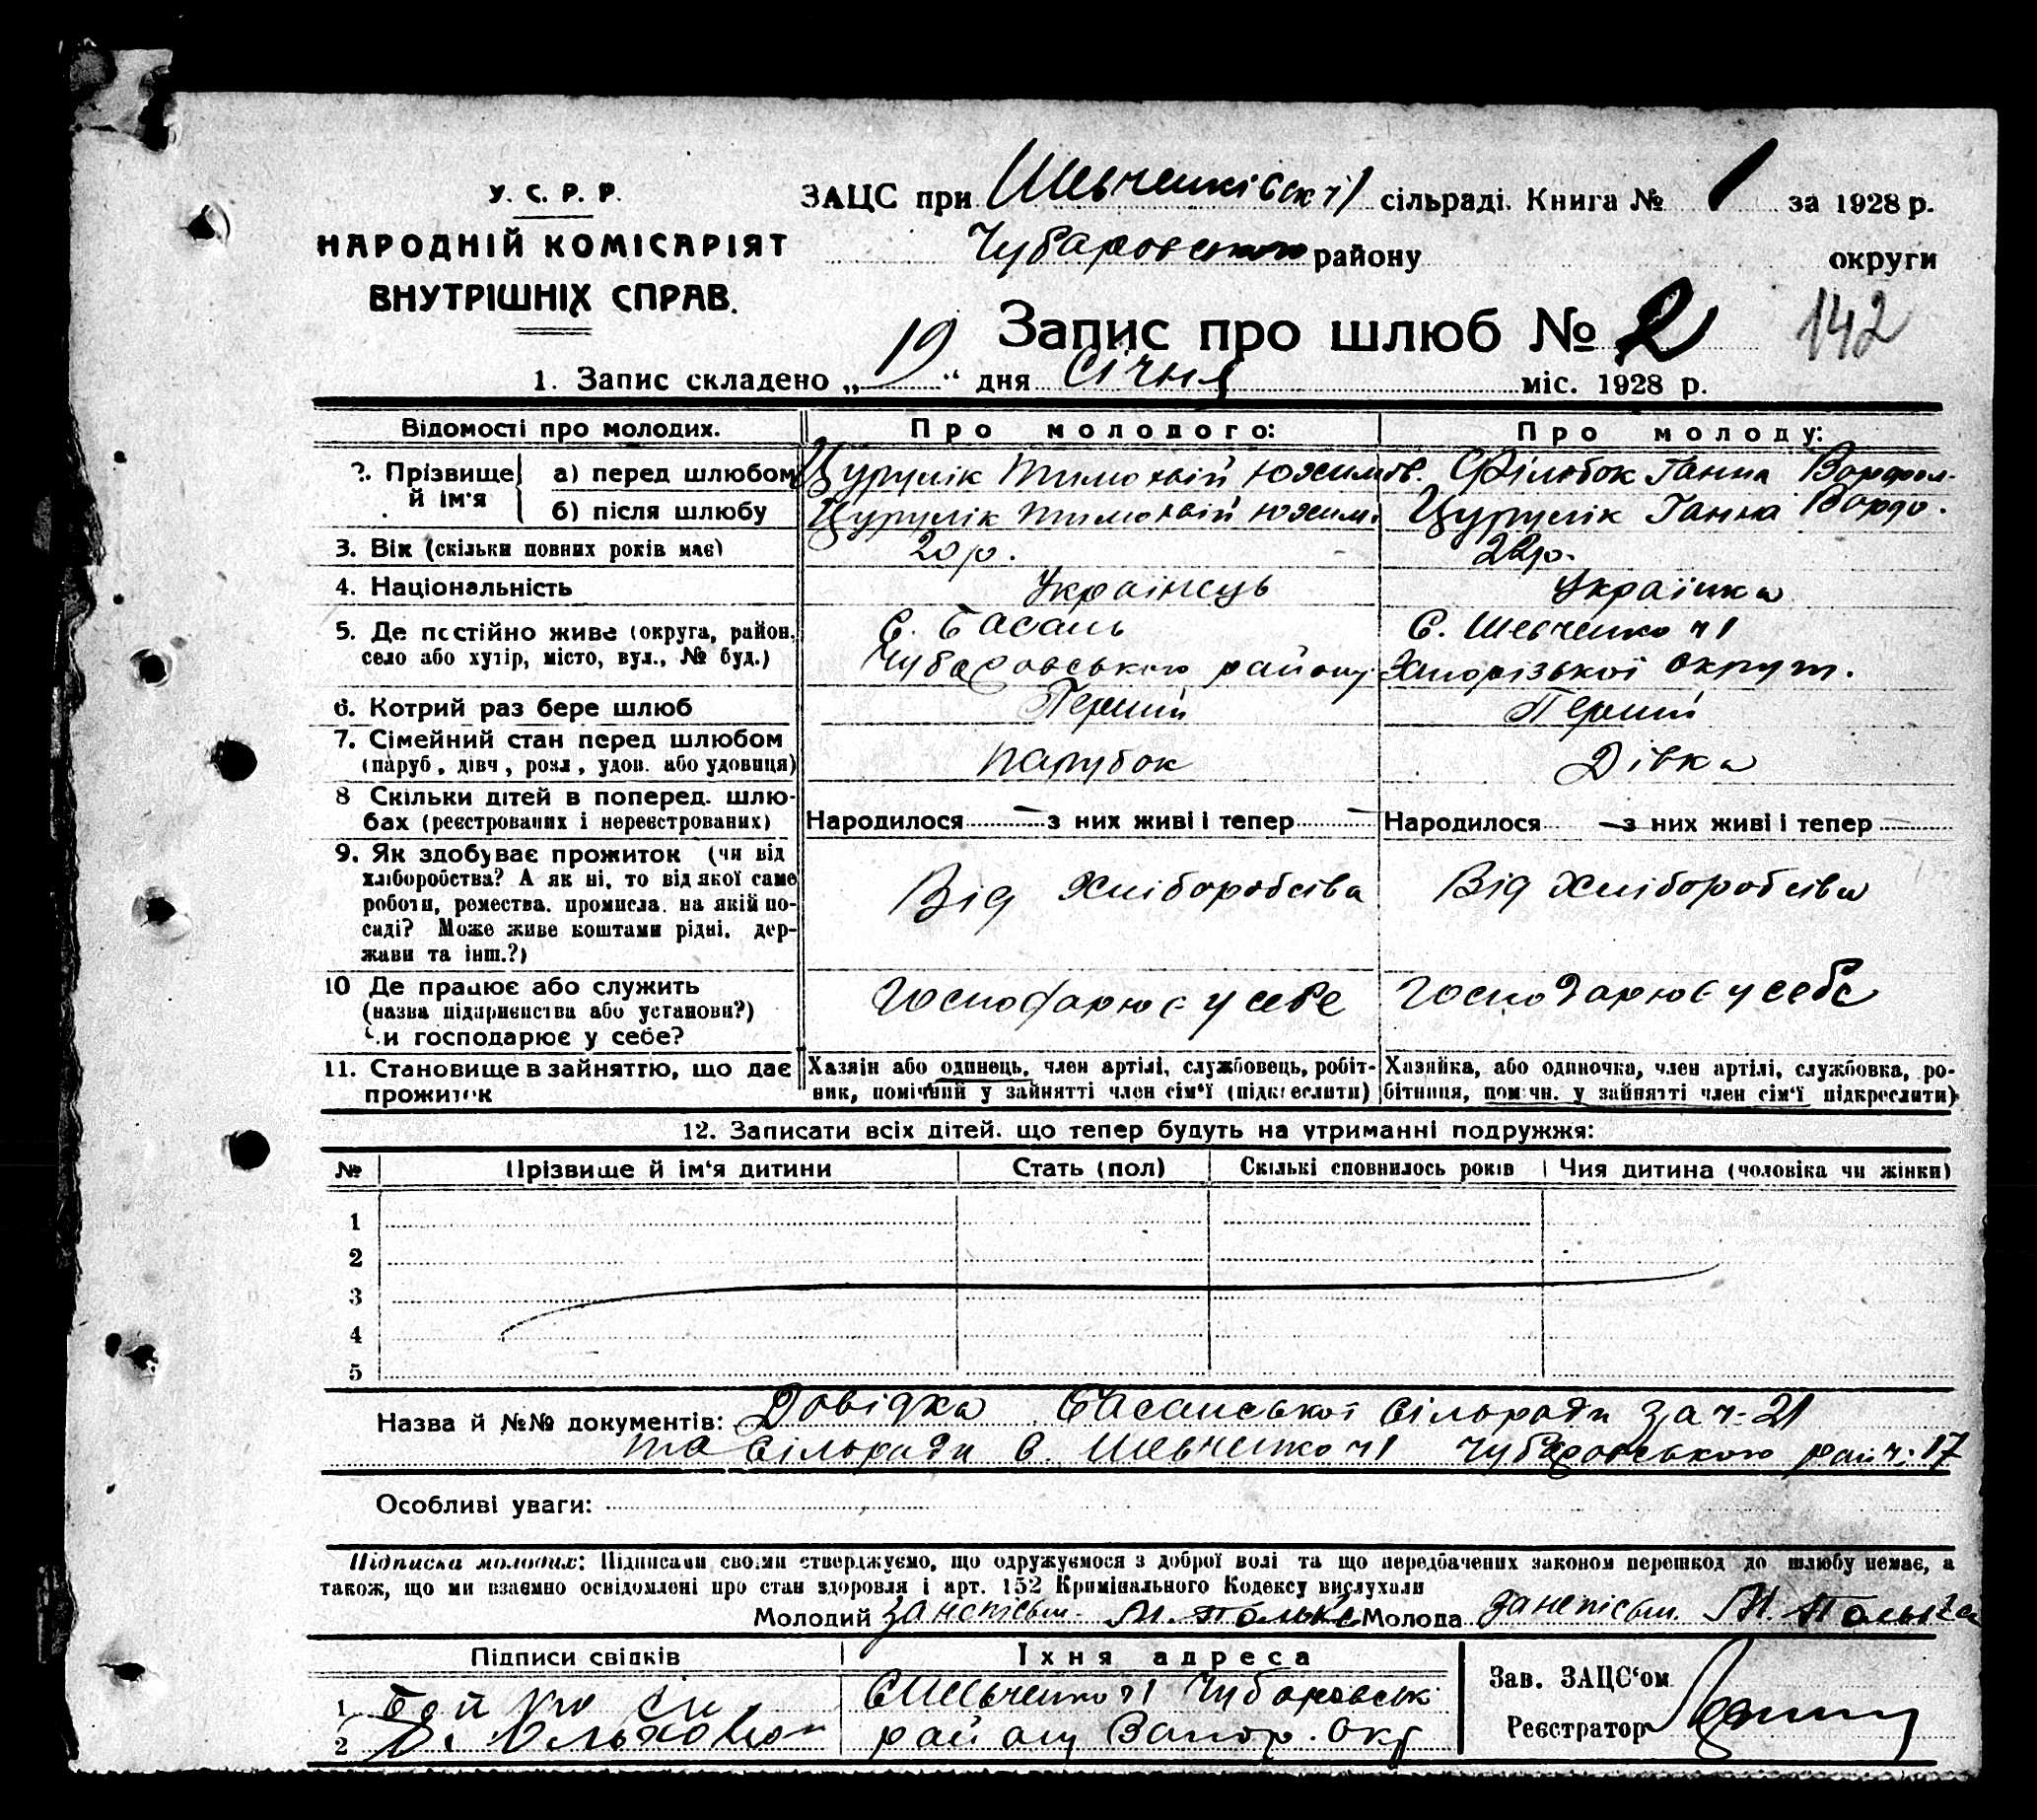 У. С. Р. Р.
НАРОДНІЙ КОМІСАРІЯТ
ВНУТРІШНІХ СПРАВ.
ЗАЦС при Шевченківськ ч1 сільраді. Книга № 1 за 1928 р.
Чубаровського району округи
Запис про шлюб № 2 142
1. Запис складено „19“ дня січня міс. 1928 р.
Відомості про молодих. Про молодого: Про молоду:
2. Прізвище й ім'я а) перед шлюбом Цурулік Тимохвій Юхимов. Філобок Ганна Ворфол.
б) після шлюбу Цурулік Тимохвій Юхим. Цурулік Ганна Ворфо.
3. Вік (скільки повних років має) 20 р. р.
4. Національність Українець Українка
5. Де постійно живе (округа, район, С. Басань С. Шевченко ч1
село або хутір, місто, вул., № буд.) Чубаровського району Запорізької округ.
6. Котрий раз бере шлюб Перший Перший
7. Сімейний стан перед шлюбом
(паруб., дівч., розл., удов. або удовиця) парубок Дівка
8 Скільки дітей в поперед. шлю-
бах (реєстрованих і нереєстрованих) Народилося — з них живі і тепер — Народилося — з них живі і тепер
9. Як здобуває прожиток (чи від
хліборобства? А як ні, то від якої саме Від Хліборобсва Від Хліборобсва
роботи, ремества, промисла, на якій по-
саді? Може живе коштами рідні, дер-
жави та інш.?)
10 Де працює або служить Господарює у себе Господарює у себе
(назва підприємства або установи?)
Чи господарює у себе?
11. Становище в зайняттю, що дає Хазяїн або одинець, член артілі, службовець, робіт- Хазяйка, або одиночка, член артілі, службовка, ро-
прожиток ник, помічний у зайнятті член сім'ї (підкреслити) бітниця, помічн. у зайнятті член сім'ї підкреслити)
12. Записати всіх дітей, що тепер будуть на утриманні подружжя:
№ Прізвище й ім'я дитини Стать (пол) Скількі сповнилось років Чия дитина (чоловіка чи жінки)
1
2
3
4
5
Назва й №№ документів: Довідка Басанської сільради за ч. 21
та сільради с. Шевченко ч1 Чубаровського рай ч. 17
Особливі уваги:
Підписка молодих: Підписами своїми стверджуємо, що одружуємося з доброї волі та що передбачених законом перешкод до шлюбу немає, а
також, що ми взаємно освідомлені про стан здоровля і арт. 152 Кримінального Кодексу вислухали
Молодий за неписьм. Молода за неписьм.
Підписи свідків Їхня адреса Зав. ЗАЦС'ом
1 С Шевченко ч1 Чубаровськ
2 району Запор. Окр Реєстратор